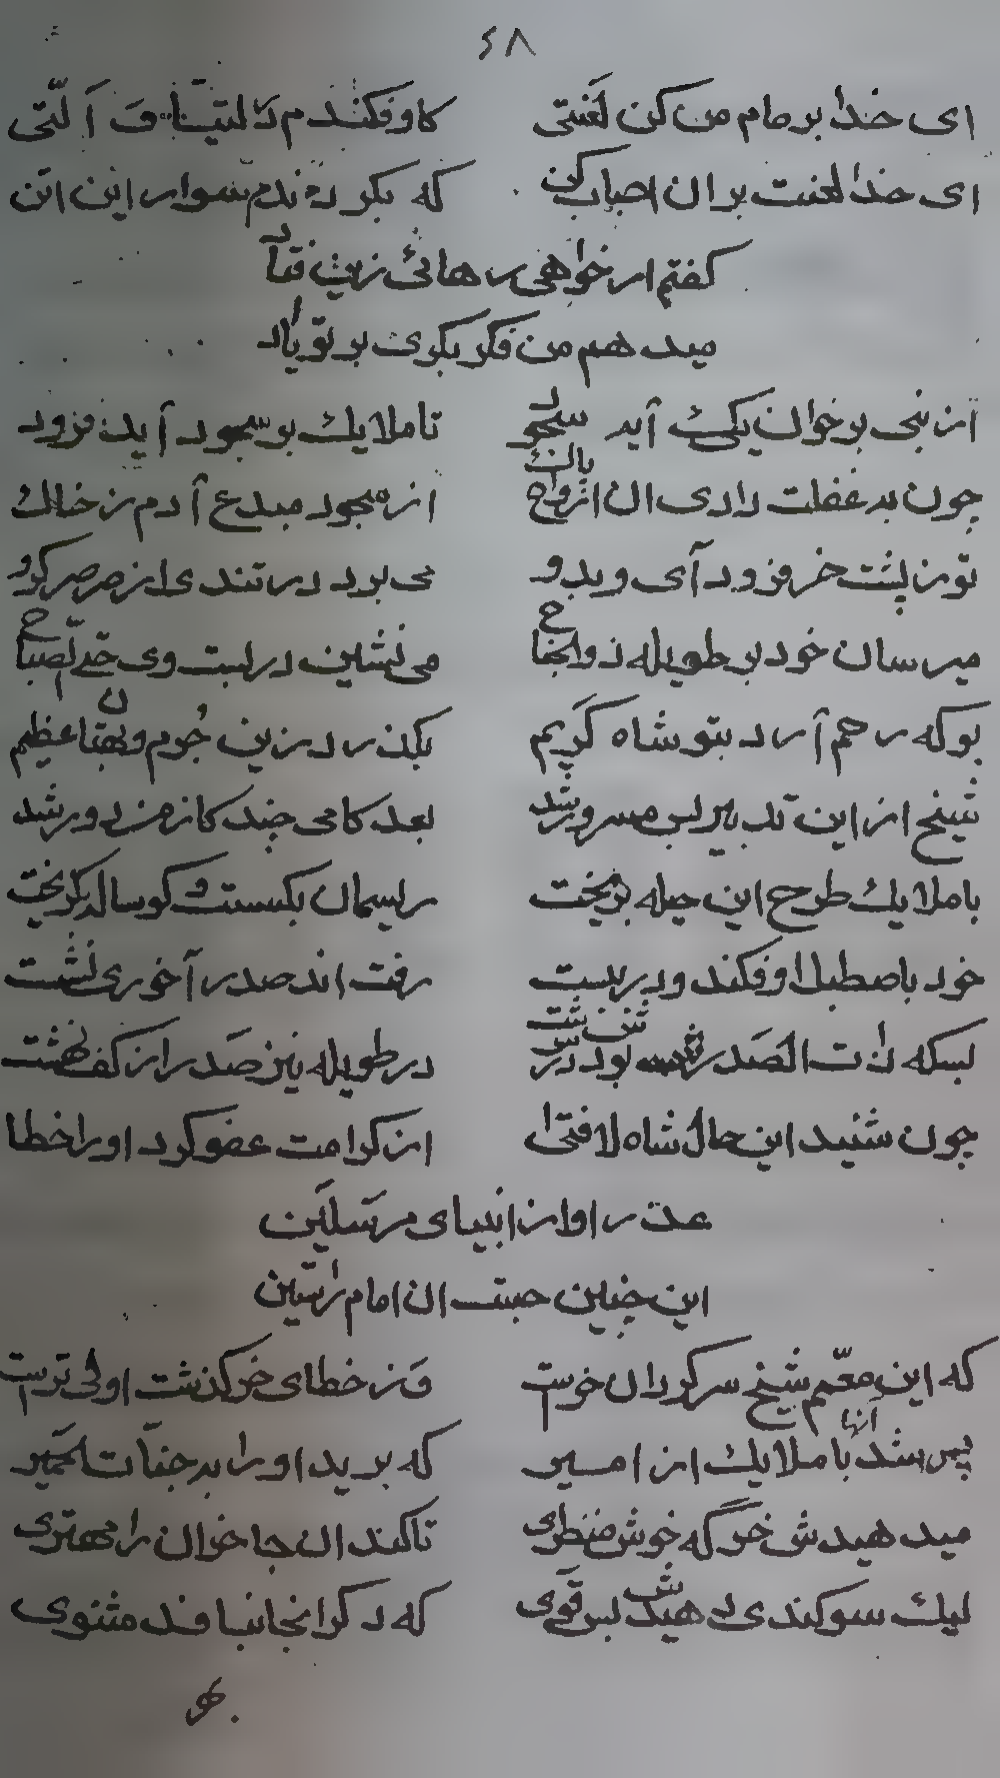 ۶۸
ای خدا بر مام من کن لعنتی کاو فکندم در
ای خدا لعنت بران اصاب کن که بکر دندم سوار این اتن
کفتم ار خواهی رهائی زین فتاد
میدهم من فکر بکری بر تو یاد
از نبی بر خوان یکی آیه سجود تا ملایک بر سجود آید فرود
چون به غفلت دادی ان ارواح پاك از سجود مبدع آدم ز خاك
تو ز پشت خر فرود آی و بدو می برد در تندی از صرصر کرو
میرسان خود بر طویله ذوالجناح می نشین در بست وی حتی الصباح
بو که رحم آرد بتو شاه کریم بکذرد زین جرم و بهتان عظیم
شیخ از این تدبیر بس مسرور شد بعد کامی چند کاز من دور شد
با ملایك طرح این حیله بریخت ریسمان بکسست و کوساله کریخت
خود باصطبل اوفکند و در ببست رفت اند صدر آخوری نشست
بسکه ذات الصدر بود در طویله نیز صدر از کف نهشت
چون شنید این حال شاه لافتی از کرامت عفو کرد او را خطا
عذر او از انبیای مرسلین
این چنین جست ان امام راستین
که این معمم شیخ سرکردان خوست و ز خطای خر کذشت اولی ترست
پس شد با ملایك از امیر که برید او را به جنات الحمیر
میدهیدش خر که خوش منظری تا کند ان جا خران را مهتری
لیك سوکندی دهیدش بس قوی که دکر انجا نبافد مثنوی